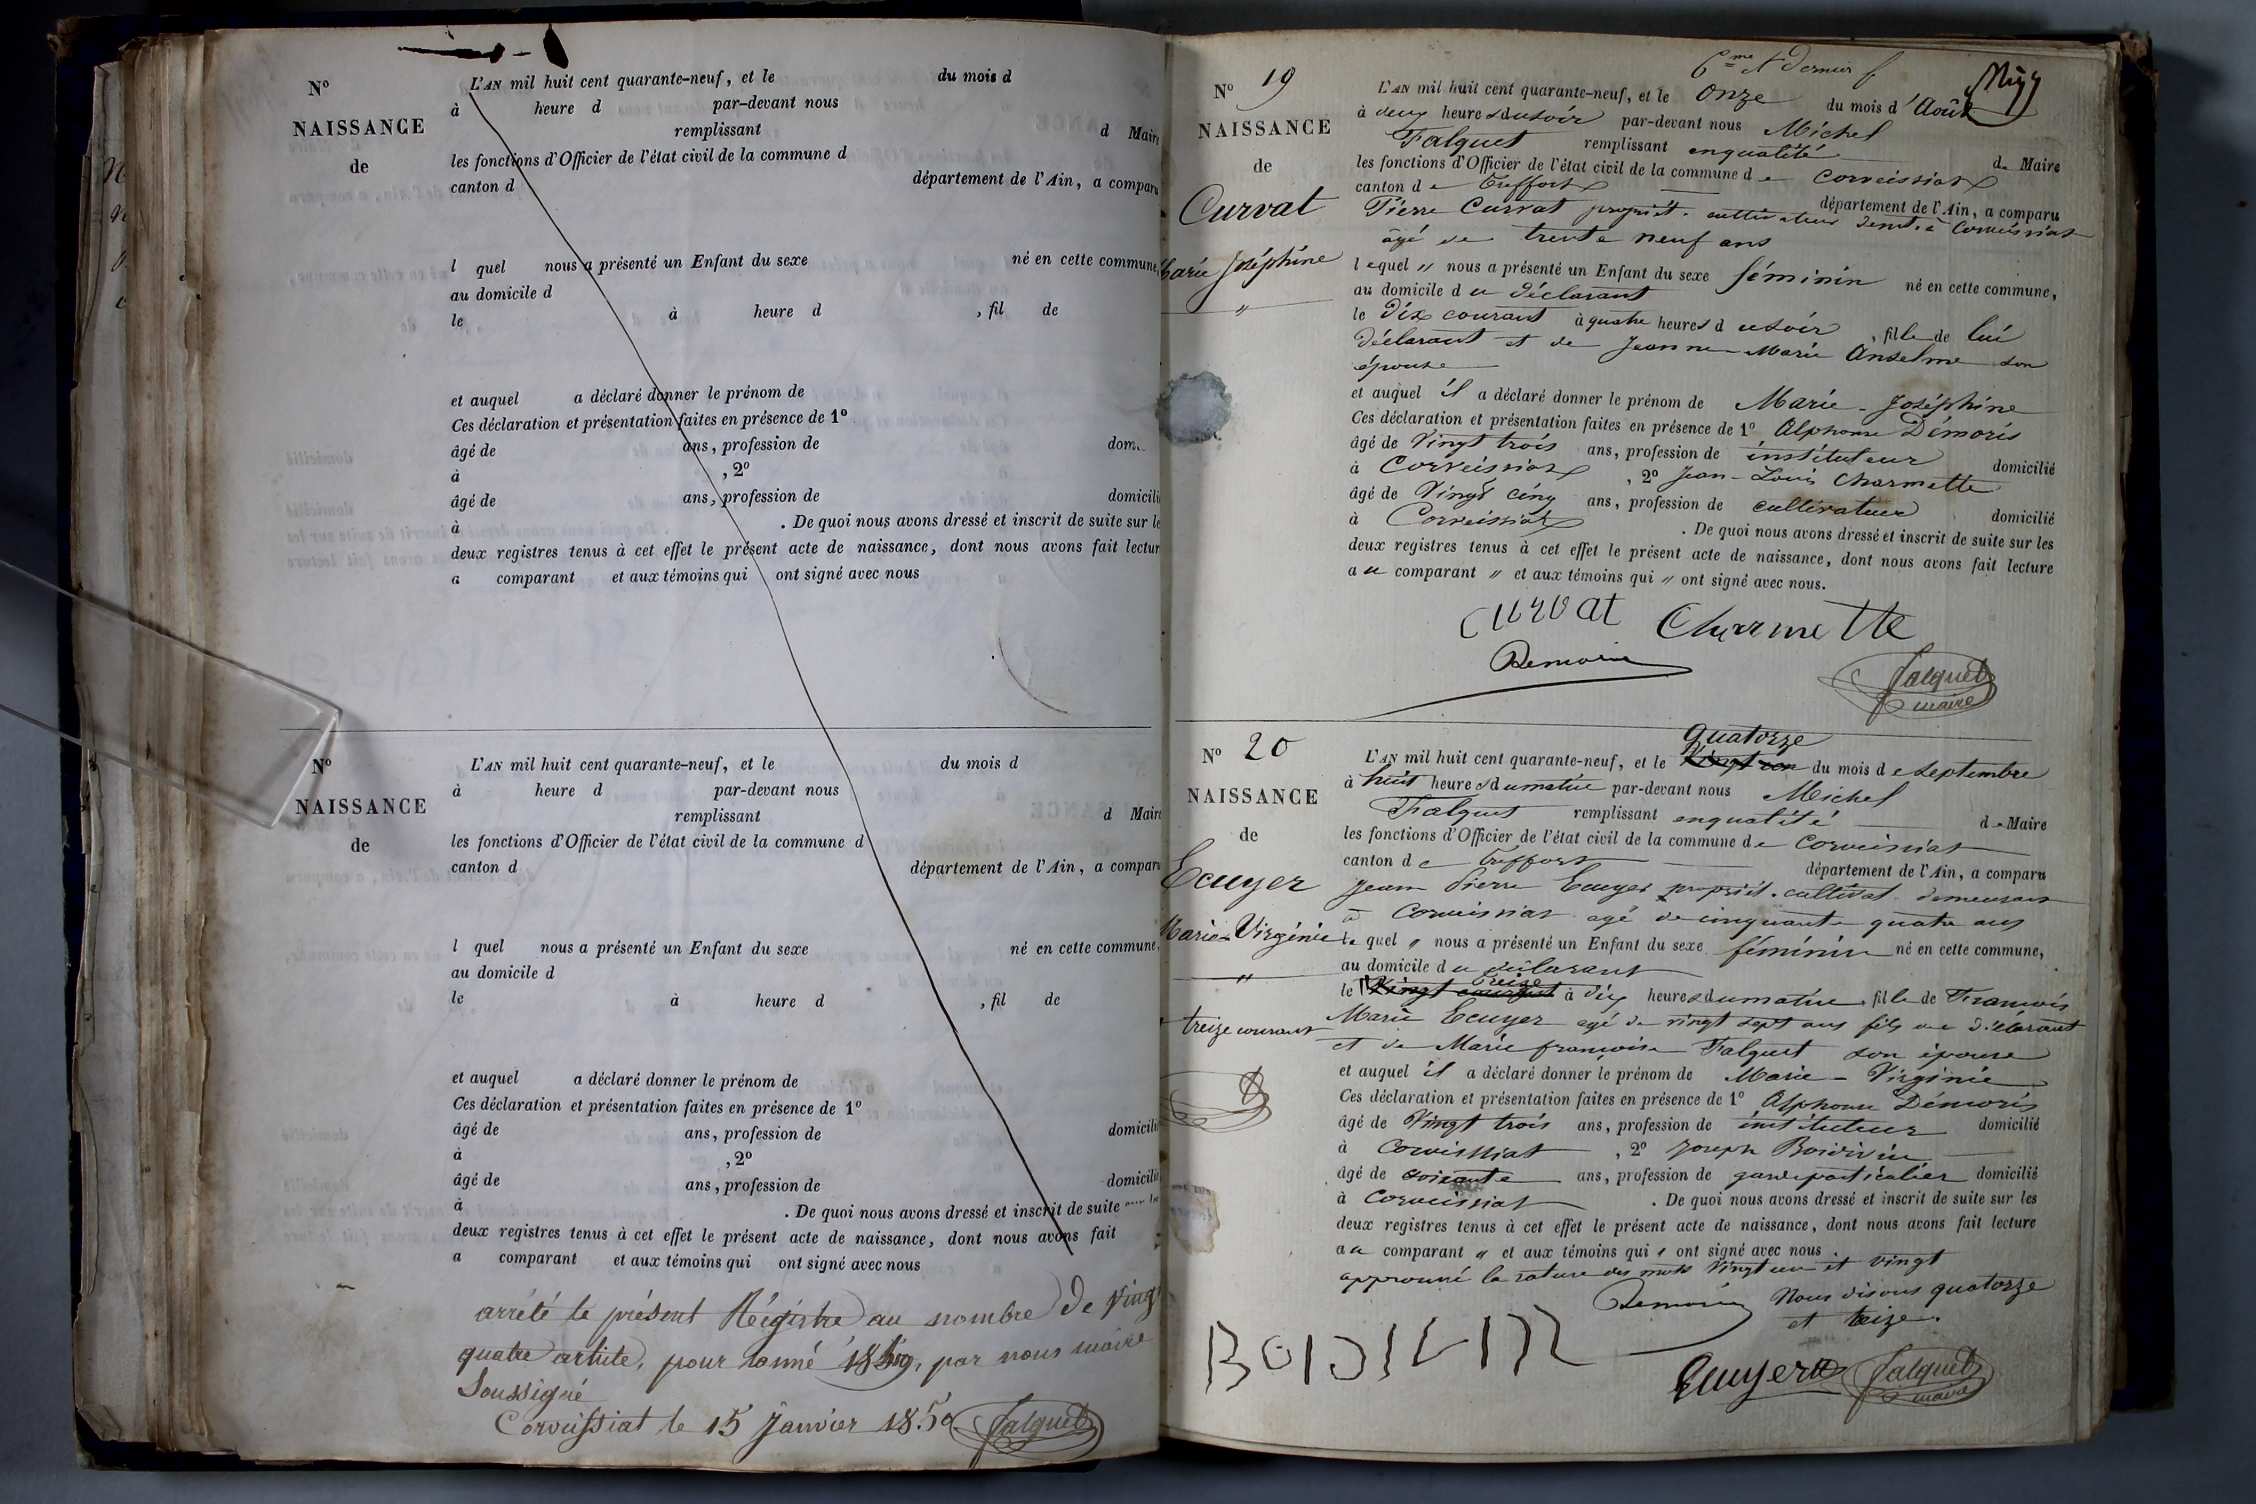 Nº
NAISSANCE
de
L'AN mil huit cent quarante-neuf, et le du mois d
à heure d par-devant nous
remplissant d Maire
les fonctions d'Officier de l'état civil de la commune d
canton d département de l'Ain, a comparu
l quel nous a présenté un Enfant du sexe né en cette commune,
au domicile d
le à heure d , fil de
et auquel a déclaré donner le prénom de
Ces déclaration et présentation faites en présence de 1º
âgé de ans, profession de dom
à , 2º
âgé de ans, profession de domicilié
à . De quoi nous avons dressé et inscrit de suite sur le
deux registres tenus à cet effet le présent acte de naissance, dont nous avons fait lectur
a comparant et aux témoins qui ont signé avec nous
Nº
NAISSANCE
de
L'AN mil huit cent quarante-neuf, et le du mois d
à heure d par-devant nous
remplissant d Maire
les fonctions d'Officier de l'état civil de la commune d
canton d département de l'Ain, a comparu
l quel nous a présenté un Enfant du sexe né en cette commune,
au domicile d
le à heure d , fil de
et auquel a déclaré donner le prénom de
Ces déclaration et présentation faites en présence de 1º
âgé de ans, profession de domicilié
à , 2º
âgé de ans, profession de domicilié
à . De quoi nous avons dressé et inscrit de suite
deux registres tenus à cet effet le présent acte de naissance, dont nous avons fait
a comparant et aux témoins qui ont signé avec nous
arrêté le présent Régistre au nombre de vingt
quatre article, pour l'anné 1849, par nous maire
Soussigné
Corveissiat le 15 Janvier 1850 Falquet
6me et Dernier f
Nº 19
NAISSANCE
de
Curvat
Marie Joséphine
"
L'AN mil huit cent quarante-neuf, et le onze du mois d'Août
à deux heures du soir par-devant nous Michel
Falquet remplissant en qualité de Maire
les fonctions d'Officier de l'état civil de la commune de Corveissiat
canton de Treffort département de l'Ain, a comparu
Pierre Curvat propriét. cultivateur demt. à Corveissiat
âgé de trente neuf ans
lequel " nous a présenté un Enfant du sexe féminin né en cette commune,
au domicile du déclarant
le dix courant à quatre heures du soir , fille de lui
déclarant et de Jeanne-Marie Anselme son
épouse
et auquel il a déclaré donner le prénom de Marie-Joséphine
Ces déclaration et présentation faites en présence de 1º Alphonse Démoris
âgé de vingt trois ans, profession de instituteur domicilié
à Corveissiat , 2º Jean-Louis Charmette
âgé de vingt cinq ans, profession de cultivateur domicilié
à Corveissiat . De quoi nous avons dressé et inscrit de suite sur les
deux registres tenus à cet effet le présent acte de naissance, dont nous avons fait lecture
au comparant " et aux témoins qui " ont signé avec nous.
Curvat Charmette
Demoris
Falquet
maire
Nº 20
NAISSANCE
de
Ecuyer
Marie-Virginie
"
treize courant
quatorze
L'AN mil huit cent quarante-neuf, et le vingt un du mois de septembre
à huit heures du matin par-devant nous Michel
Falquet remplissant en qualité de Maire
les fonctions d'Officier de l'état civil de la commune de Corveissiat
canton de Treffort département de l'Ain, a comparu
Jean Pierre Ecuyer propriét. cultivat. demeurant
à Corveissiat agé de cinquante quatre ans
lequel " nous a présenté un Enfant du sexe féminin né en cette commune,
au domicile du déclarant
treize
le vingt courant à dix heures du matin, fille de François
Marie Ecuyer agé de vingt sept ans fils du déclarant
et de Marie françoise Falquet son épouse
et auquel il a déclaré donner le prénom de Marie-Virginie
Ces déclaration et présentation faites en présence de 1º Alphonse Démoris
âgé de vingt trois ans, profession de instituteur domicilié
à Corveissiat , 2º Joseph Boidivin
âgé de soixante ans, profession de garde particulier domicilié
à Corveissiat . De quoi nous avons dressé et inscrit de suite sur les
deux registres tenus à cet effet le présent acte de naissance, dont nous avons fait lecture
au comparant " et aux témoins qui " ont signé avec nous.
approuvé la rature des mots vingt un et vingt
Demoris Nous disons quatorze
et treize.
BOIDIVIN
Ecuyer Falquet
maire